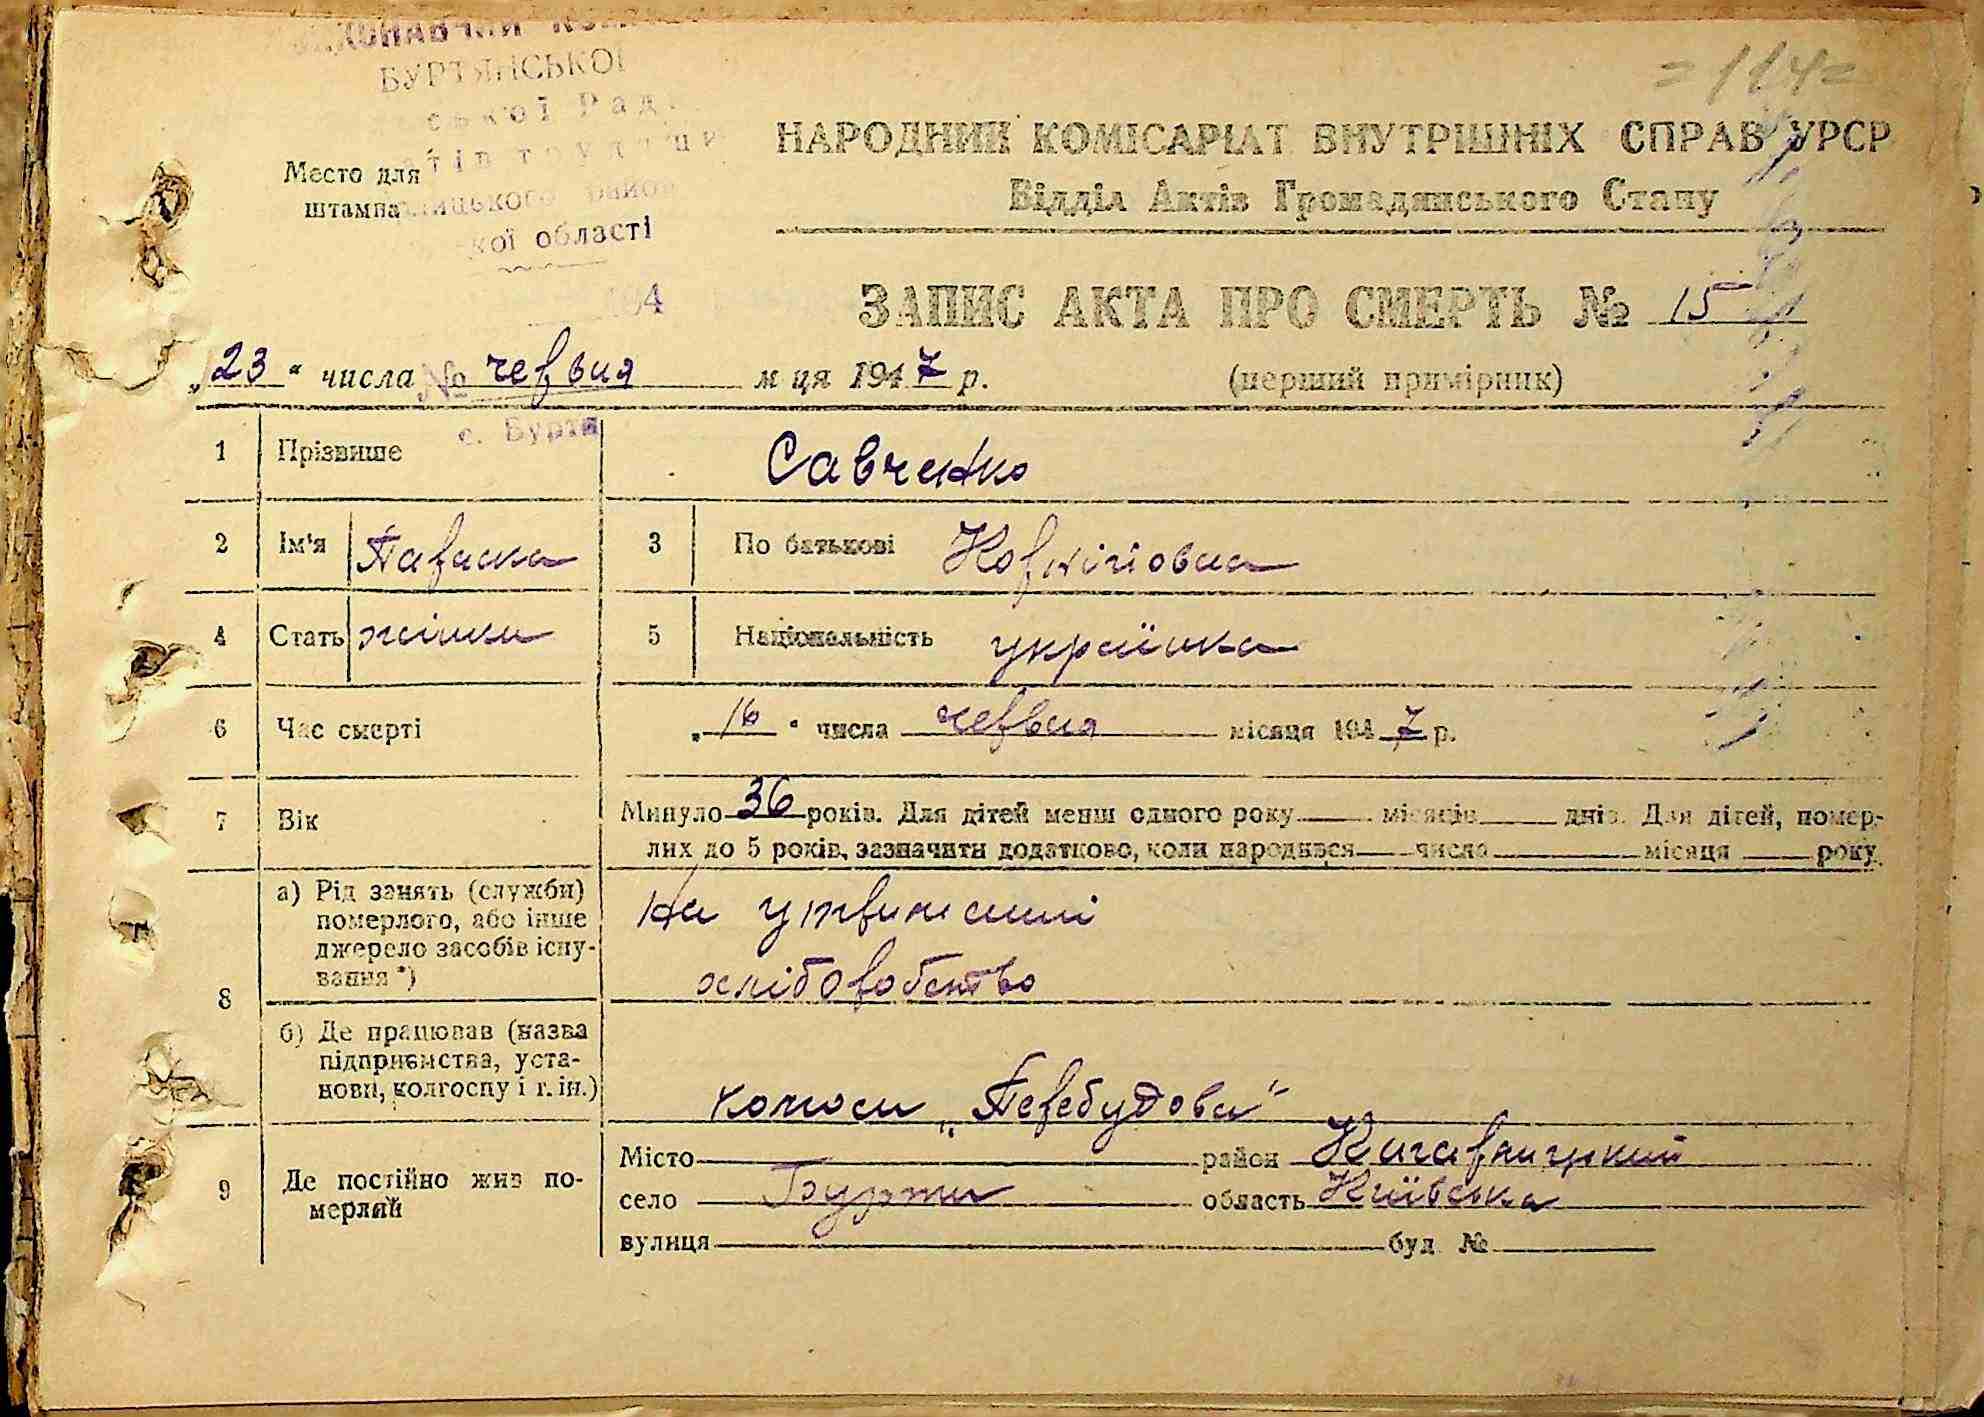 БУРТЯНСЬКОЇ
ської Рад
області
=114=
НАРОДНИЙ КОМІСАРІАТ ВНУТРІШНІХ СПРАВ УРСР
Відділ Актів Громадянського Стану
Место для
штампа
194
ЗАПИС АКТА ПРО СМЕРТЬ № 15
„23“ числа червня м-ця 1947 р. (перший примірник)
№
с. Бурти
1 Прізвище Савченко
2 Ім'я Параска 3 По батькові
4 Стать жінки 5 Національність українка
6 Час смерті „16“ числа червня місяця 1947 р.
7 Вік Минуло 36 років. Для дітей менш одного року місяців днів. Для дітей, помер-
лих до 5 років, зазначити додатково, коли народився числа місяця року
8 а) Рід занять (служби)
померлого, або інше
джерело засобів існу-
вання*)
На утриманні
хліборобство
б) Де працював (назва
підприємства, уста-
нови, колгоспу і т. ін.)
колгосп „Перебудова“
9 Де постійно жив по-
мерлий
Місто район Кагарлицький
село Бурти область Київська
вулиця буд. №